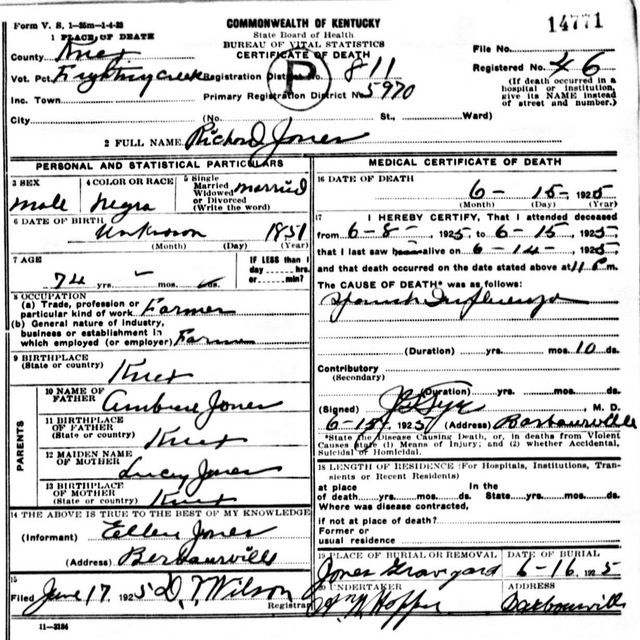 Form V. S. 1-35m-1-4-23
COMMONWEALTH OF KENTUCKY
State Board of Health
BUREAU OF VITAL STATISTICS
CERTIFICATE OF DEATH
14771
1 PLACE OF DEATH
County Knox
File No.
Vot. Pct. Fighting Creek Registration District No. 811
Registered No. 46
P
Inc. Town Primary Registration District No. 5970
(If death occurred in a hospital or institution, give its NAME instead of street and number.)
City (No. St., Ward)
2 FULL NAME Richard Jones
PERSONAL AND STATISTICAL PARTICULARS
3 SEX male
4 COLOR OR RACE Negra
5 Single Married Widowed or Divorced (Write the word) married
6 DATE OF BIRTH Unknown 1851
(Month) (Day) (Year)
7 AGE
74 yrs. mos.
IF LESS than 1 day hrs. or min.?
8 OCCUPATION
(a) Trade, profession or particular kind of work Farmer
(b) General nature of industry, business or establishment in which employed (or employer) Farm
9 BIRTHPLACE
(State or country) Knox
PARENTS
10 NAME OF FATHER Ambrose Jones
11 BIRTHPLACE OF FATHER (State or country) Knox
12 MAIDEN NAME OF MOTHER Lucy Jones
13 BIRTHPLACE OF MOTHER (State or country) Knox
14 THE ABOVE IS TRUE TO THE BEST OF MY KNOWLEDGE
(Informant) Ellen Jones
(Address) Berbourville
15
Filed June 17, 1925 D. T. Wilson
Registrar
11-3184
MEDICAL CERTIFICATE OF DEATH
16 DATE OF DEATH
6-15-, 1925
(Month) (Day) (Year)
17 I HEREBY CERTIFY, That I attended deceased
from 6-8-, 1925, to 6-15-, 1925,
that I last saw alive on 6-14-, 1925,
and that death occurred on the date stated above at 11 m.
The CAUSE OF DEATH* was as follows:
Spanish Influenza
(Duration) yrs. mos. 10 ds.
Contributory
(Secondary)
(Duration) yrs. mos. ds.
(Signed) Tye, M. D.
6-15, 1925 (Address) Barbourville
*State the Disease Causing Death, or, in deaths from Violent Causes state (1) Means of Injury; and (2) whether Accidental, Suicidal or Homicidal.
18 LENGTH OF RESIDENCE (For Hospitals, Institutions, Transients or Recent Residents)
at place of death yrs. mos. ds. In the State yrs. mos. ds.
Where was disease contracted,
if not at place of death?
Former or
usual residence
19 PLACE OF BURIAL OR REMOVAL DATE OF BURIAL
Jones Gravyard 6-16, 1925
20 UNDERTAKER ADDRESS
Hopper Barbourville